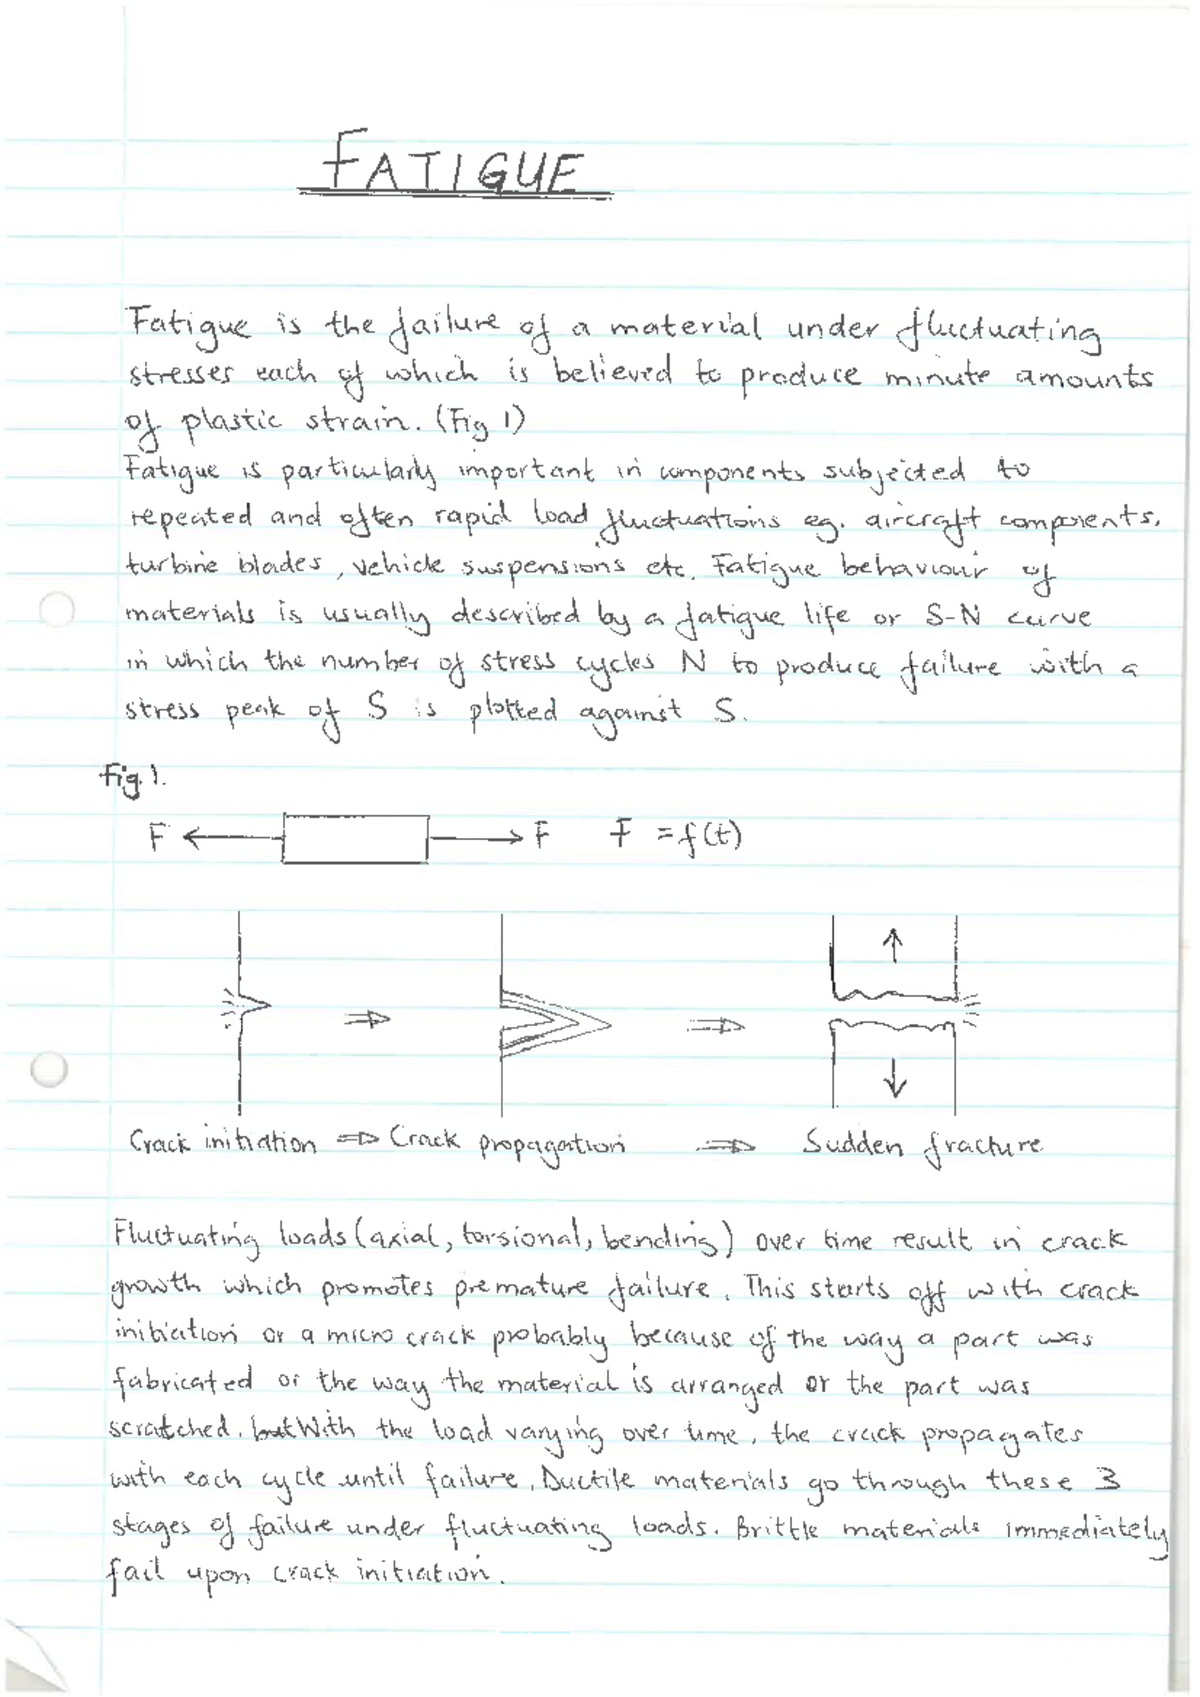 FATIGUE
Fatigue is the failure of a material under fluctuating
stresses each of which is believed to produce minute amounts
of plastic strain. (Fig 1)
Fatigue is particularly important in components subjected to
repeated and often rapid load fluctuations eg. aircraft components,
turbine blades, vehicle suspensions etc. Fatigue behaviour of
materials is usually described by a fatigue life or S-N curve
in which the number of stress cycles N to produce failure with a
stress peak of S is plotted against S.
Fig 1.
F ← → F F = f(t)
⇒ ⇒
Crack initiation ⇒ Crack propagation ⇒ Sudden fracture
Fluctuating loads (axial, torsional, bending) over time result in crack
growth which promotes premature failure. This starts off with crack
initiation or a micro crack probably because of the way a part was
fabricated or the way the material is arranged or the part was
scratched. but With the load varying over time, the crack propagates
with each cycle until failure. Ductile materials go through these 3
stages of failure under fluctuating loads. Brittle materials immediately
fail upon crack initiation.